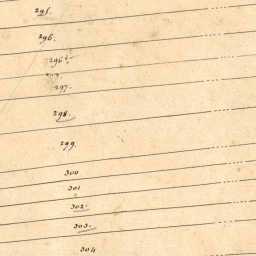 295.
296.
296½
297.
298.
299.
300
301
302.
303.
304